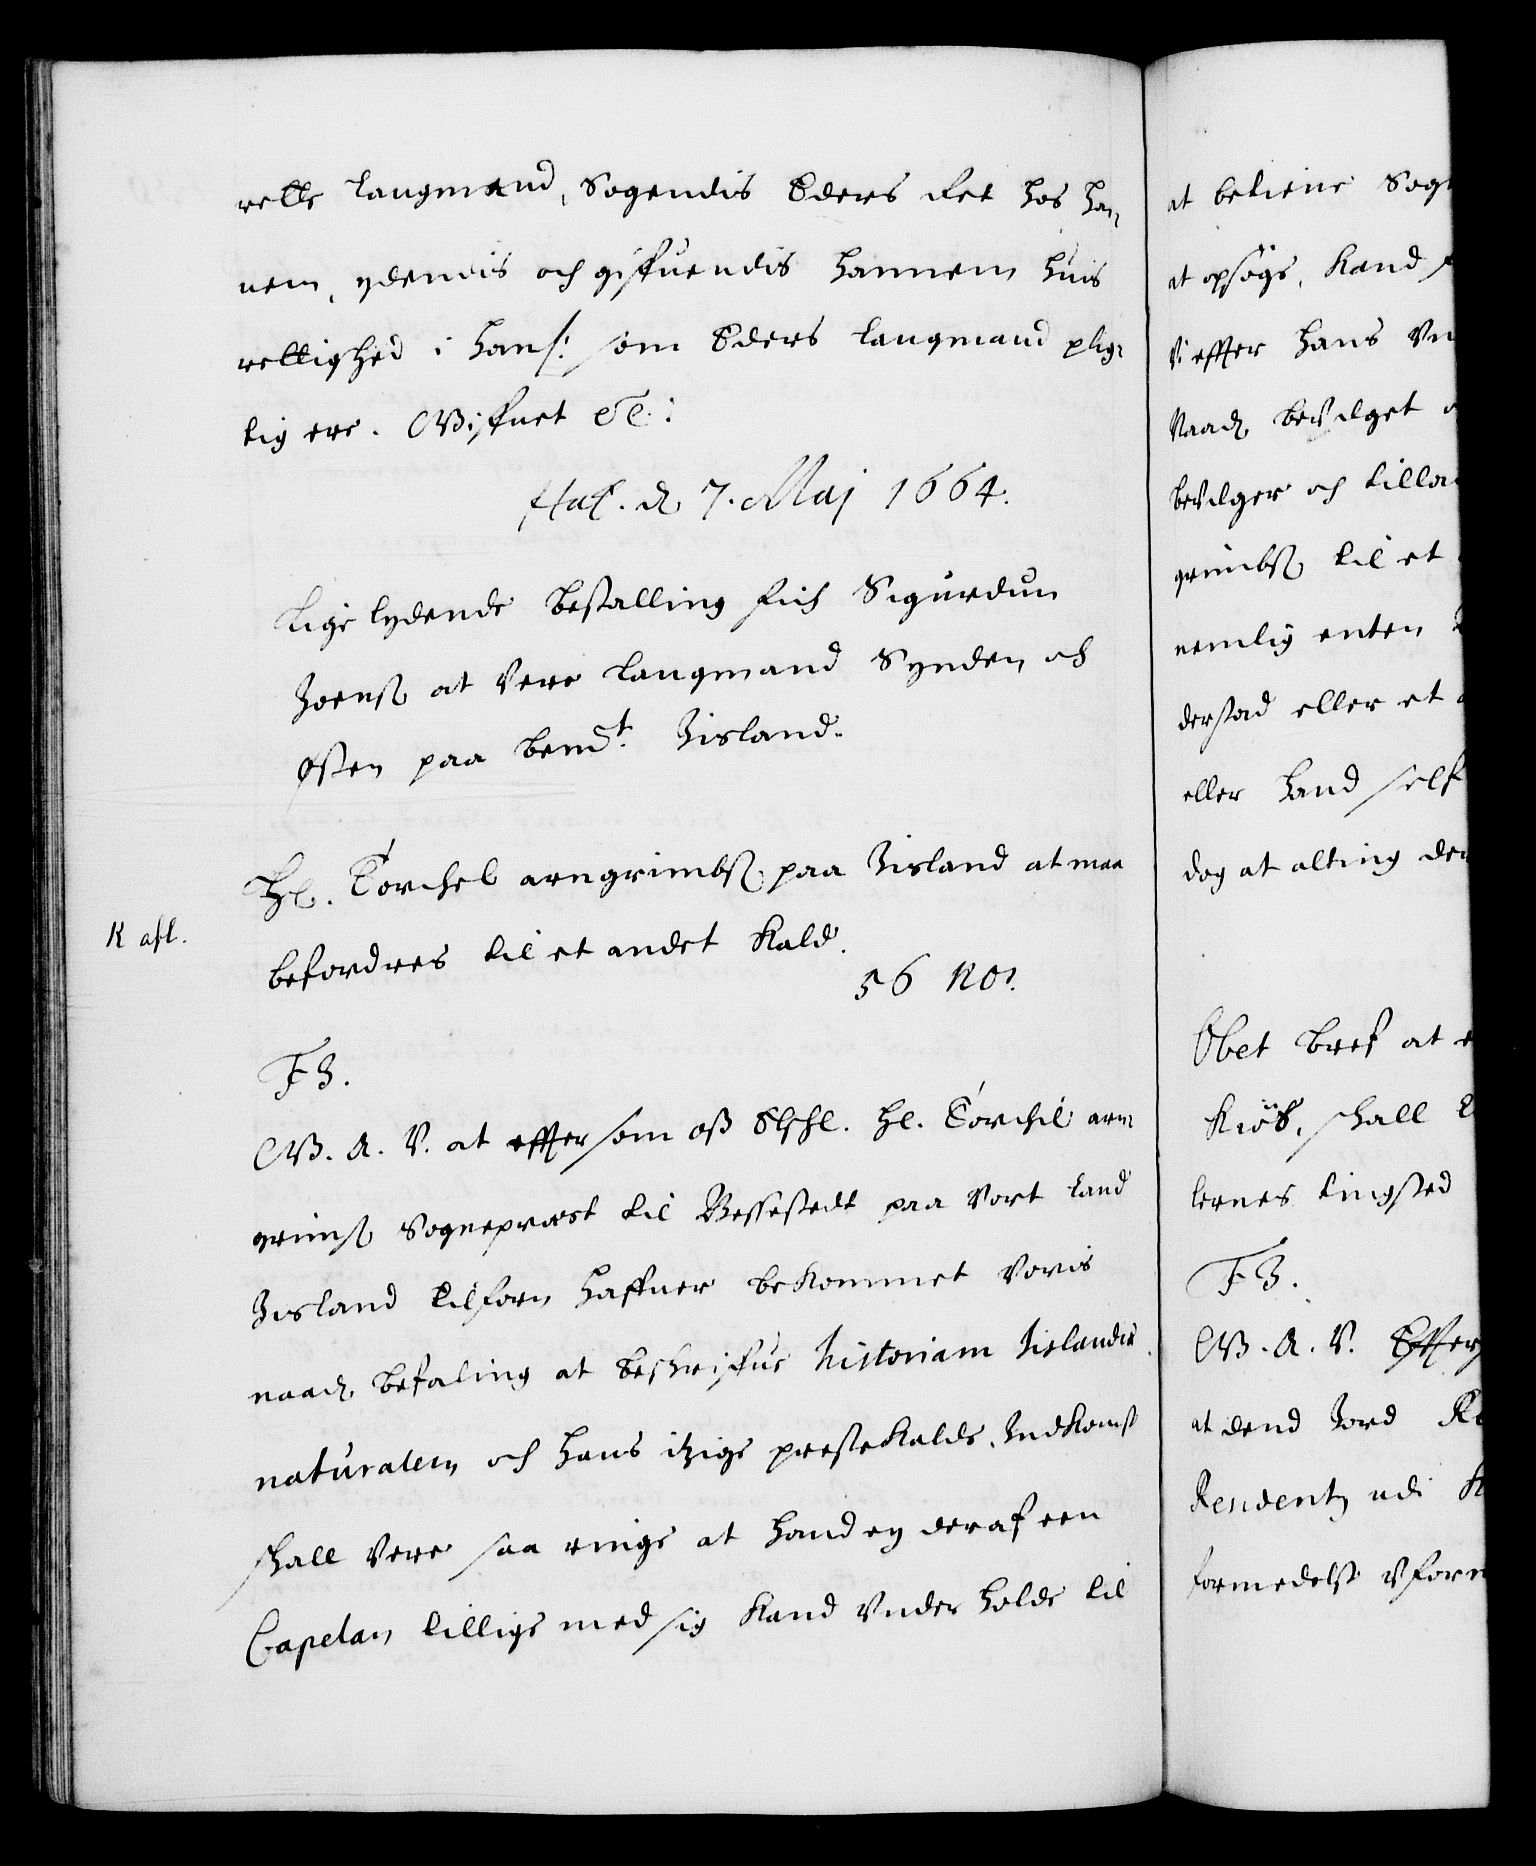 rette Laugmand, Sogendis Eders ret hos han-
nem, ydendis och gifvendis hannem huis
rettighed i hans: som Eders Laugmand plig-
tig ere. Gifvet etc:
Haf. d. 7. Maj 1664.
Lige lydende bestalling fich Sigurdur
Joenß at Vere Laugmand Synden och
Østen paa bemt. Jisland.
Hr. Torchel arngrimbß. paa Jisland at maa
befordres til et andet Kald.
K afl.
56 No.
F3.
G. A. V. at effter som oß Elschl. Hr. Torchil arn-
grimß Sogneprest til Bessestedt paa Vort Land
Jisland tilforn haffuer bekommet Voris
naad. befaling at beskrifve historiam Jislandiæ
naturalem och hans itzige prestekalds Indkomst
schall Vere saa ringe at hand ey deraf een
Capelan tillige med sig Kand Vnder holde til
at betiene Sog
at opsøge, Kand
Vi effter hans Vn
Naad. bevilget
bevilger och tilla
grimbß til et
nemlig enten
derstad eller et
eller hand self
dog at alting der
Obet bref at
Kiøb. schall
lernes tingsted
F3.
G. A. V. Effter
at dend Jord
Residentz udi
formedelst Vform